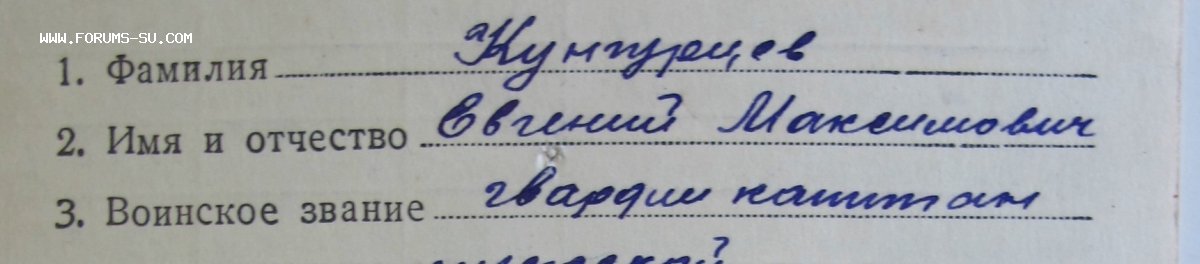 WWW.FORUMS-SU.COM
1. Фамилия Кунгурцев
2. Имя и отчество Евгений Максимович
3. Воинское звание гвардии капитан